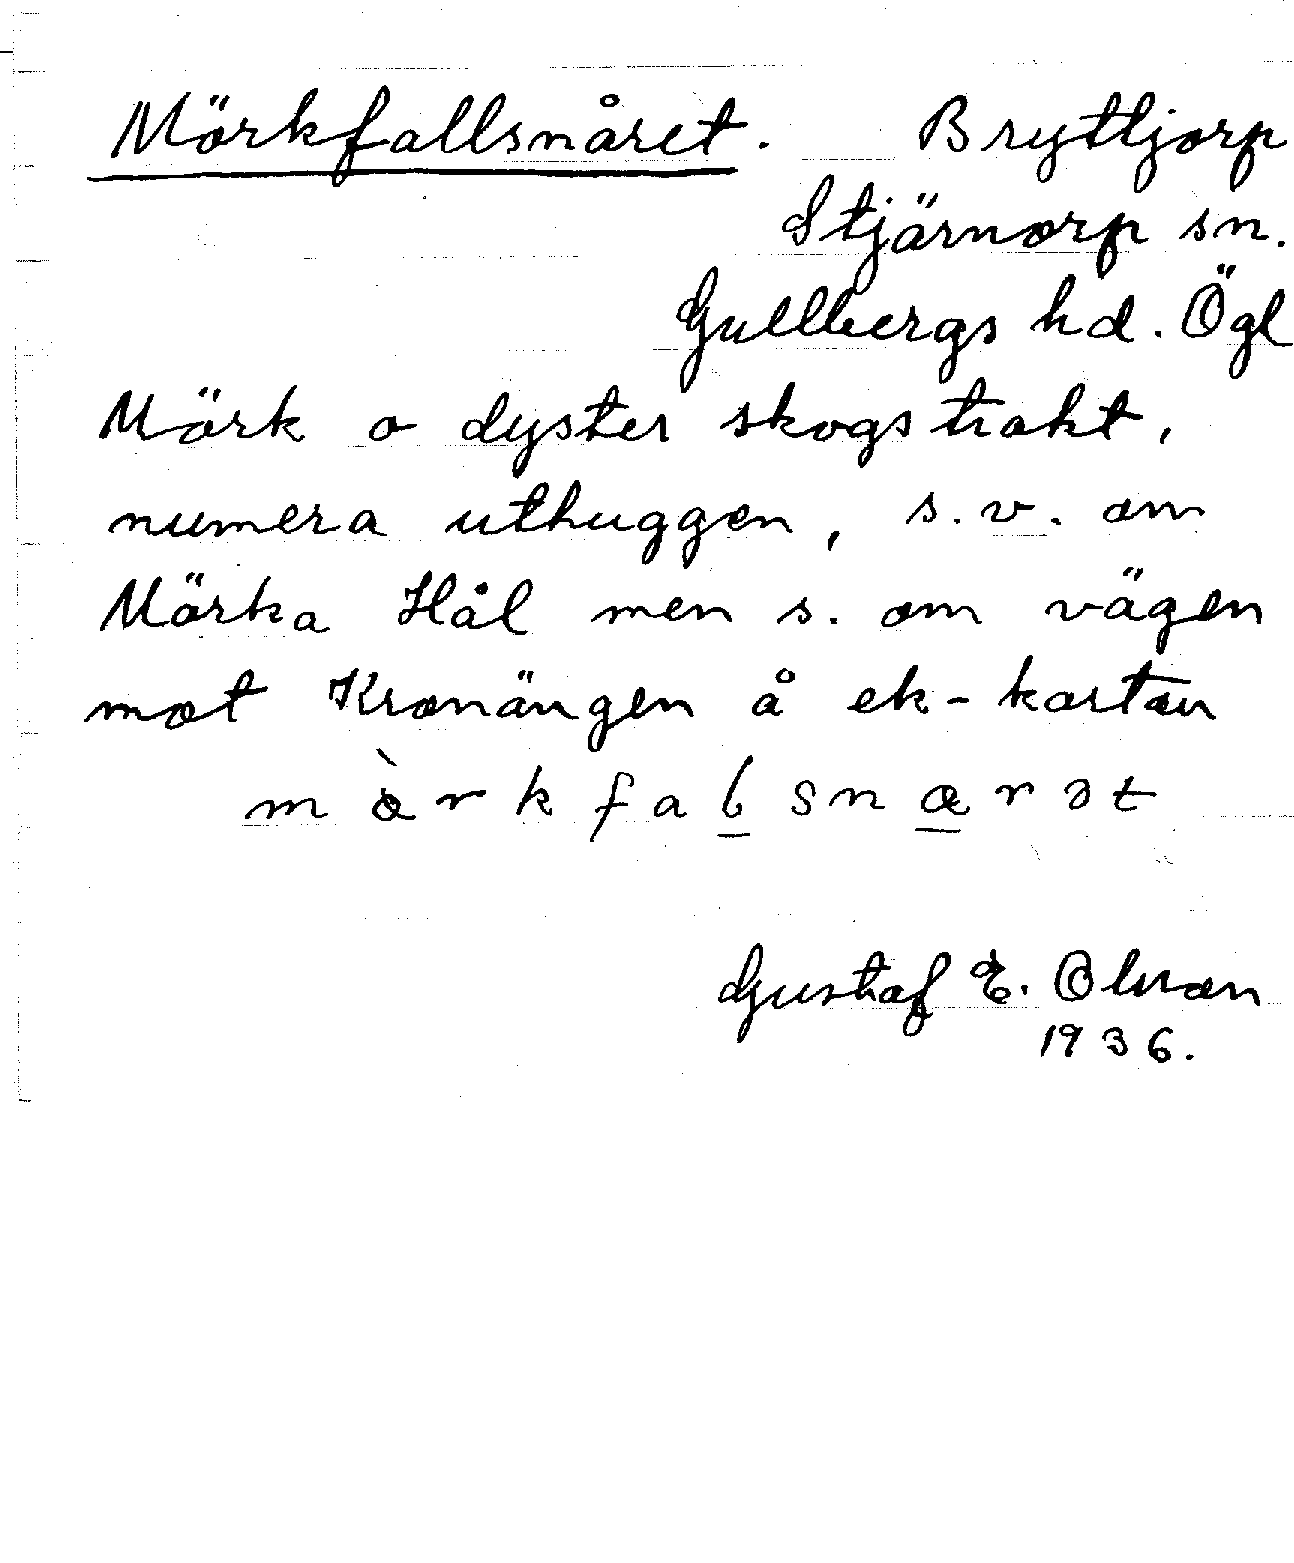 Mörkfallsnåret. Bryttjorp
Stjärnorp sn.
Gullbergs hd. Ögl
Mörk o dyster skogstrakt,
numera uthuggen, s.v. om
Mörka Hål men s. om vägen
mot Kronängen å ek-kartan
Gustaf E. Olsson
1936.